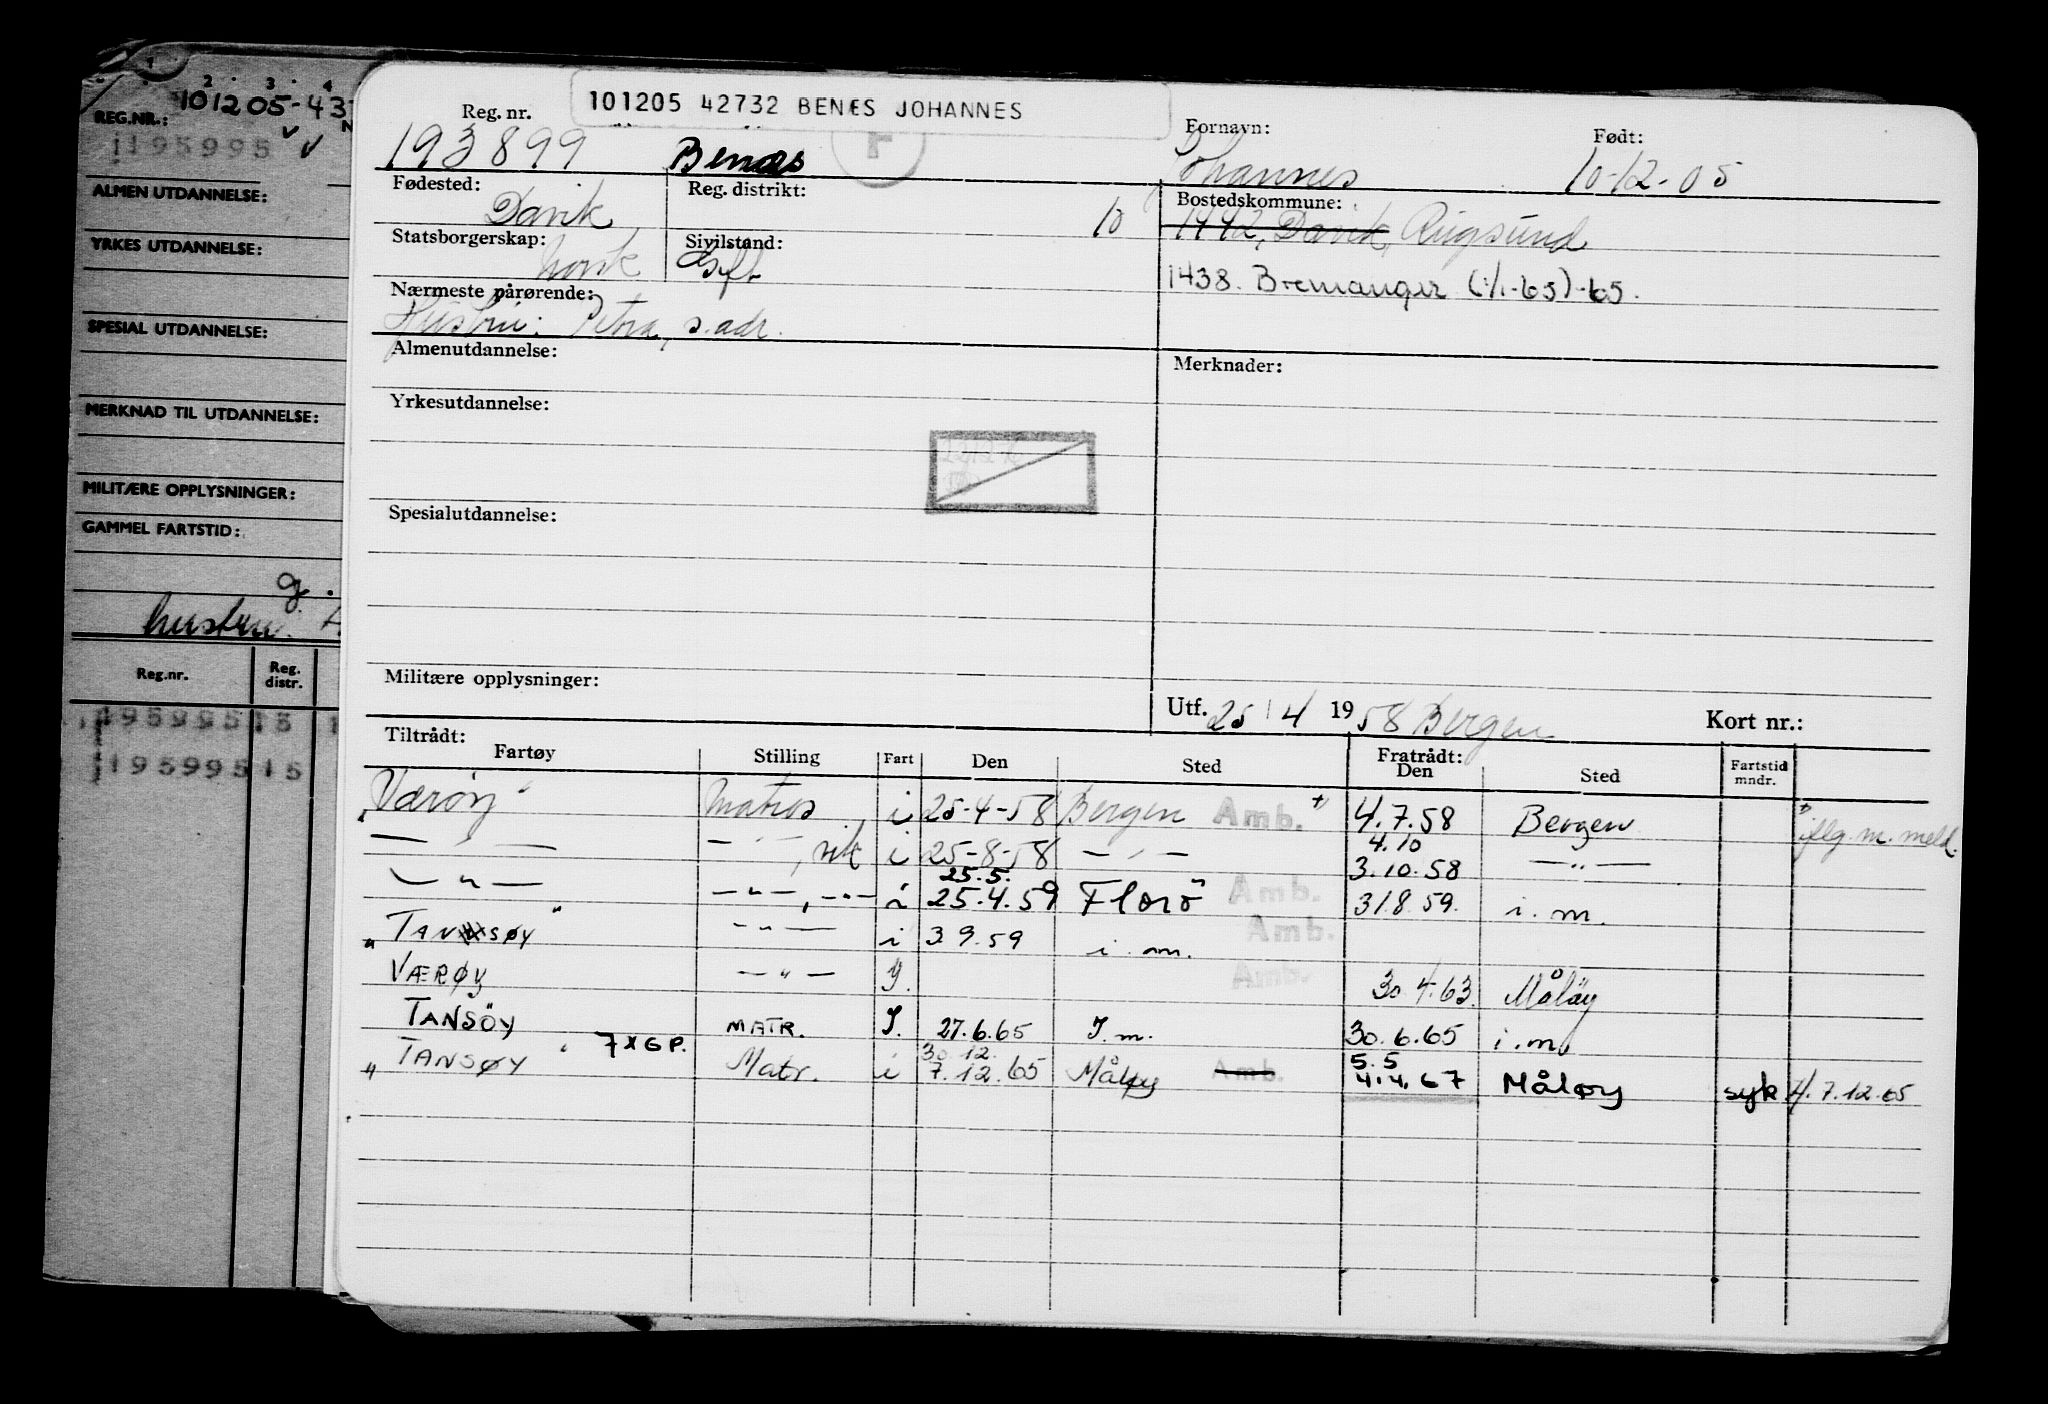 1 2 3 4
REG.NR.: 101205-43
195995
ALMEN UTDANNELSE:
YRKES UTDANNELSE:
SPESIAL UTDANNELSE:
MERKNAD TIL UTDANNELSE:
MILITÆRE OPPLYSNINGER:
GAMMEL FARTSTID:
g.
hustru:
Reg.nr. Reg. distr.
195995 15
195995 15
101205 42732 BENÆS JOHANNES
Reg. nr. Fornavn: Født:
193899 Benæs Johannes 10-12-05
Fødested: Reg. distrikt: Bostedskommune:
Davik 10 1442, Davik, Rugsund
Statsborgerskap: Sivilstand:
norsk Gift 1438. Bremanger (1/1-65)-65.
Nærmeste pårørende:
Hustru: Petra, s. adr.
Almenutdannelse: Merknader:
Yrkesutdannelse:
Spesialutdannelse:
Militære opplysninger:
Utf. 25/4 1958 Bergen Kort nr.:
Tiltrådt: Fratrådt:
Fartøy Stilling Fart Den Sted Den Sted Fartstid mndr.
"Værøy" matros i 25-4-58 Bergen Amb. + 4.7.58 Bergen + iflg. m. meld.
— " — — " —, i 25-8-58 — " — 4.10 3.10.58 — " —
— " — — " —, — " — i 25.5. 25.4.59 Florö Amb. 31.8.59. i. m.
" TANSØY " — " — i 3.9.59 i. m. Amb.
VÆRØY — " — I. Amb. 30.4.63 Måløy
TANSÖY MATR. I. 27.6.65 I.m. 30.6.65 i.m.
" TANSØY " 7 X G P. Matr. i 30.12. 7.12.65 Måløy Amb. 5.5 4.4.67 Måløy syk 7.12.65